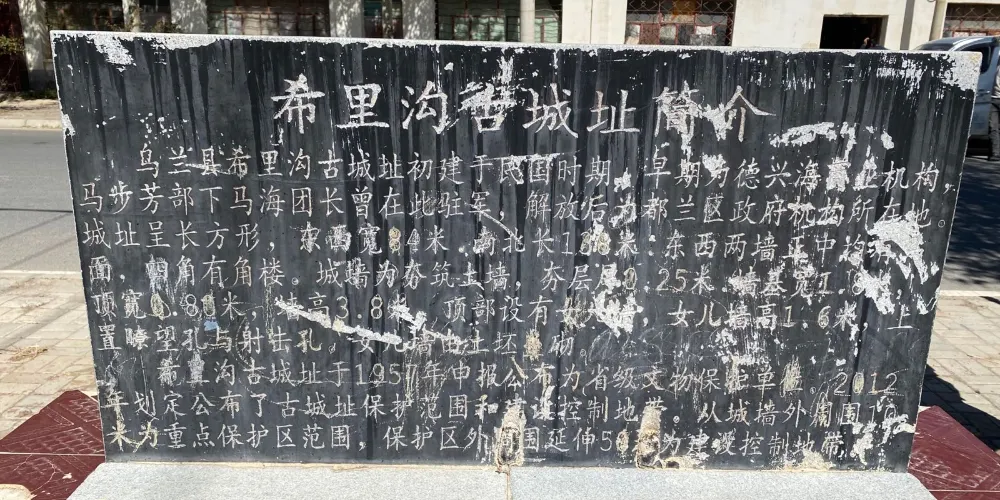 希里沟古城址简介
乌兰县希里沟古城址初建于民国时期。早期为德兴海 机构，
马步芳部下马海团长曾在此驻军，解放后为都兰区政府机构所在地。
城址呈长方形，东西宽84米，南北长138米。东西两墙正中均
面，四角有角楼。城墙为夯筑土墙，夯层厚0.25米，墙基宽
顶宽0.80米，墙高3.8米，顶部设有女儿墙，女儿墙高1.6米，上
置瞭望孔与射击孔，女儿墙由土坯 砌。
希里沟古城址于1957年申报公布为省级文物保护单位。2012
年划定公布了古城址保护范围和建设控制地带。从城墙外周围
米为重点保护区范围，保护区外周围延伸50 为建设控制地带。